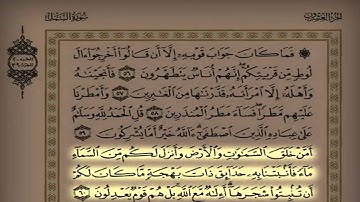 الجزء العشرون
سورة النمل
۞ فَمَا كَانَ جَوَابَ قَوْمِهِ إِلَّا أَن قَالُوا أَخْرِجُوا ءَالَ
لُوطٍ مِّن قَرْيَتِكُمْ إِنَّهُمْ أُنَاسٌ يَتَطَهَّرُونَ ٥٦ فَأَنجَيْنَٰهُ
وَأَهْلَهُ إِلَّا امْرَأَتَهُ قَدَّرْنَٰهَا مِنَ الْغَٰبِرِينَ ٥٧ وَأَمْطَرْنَا
عَلَيْهِم مَّطَرًا فَسَاءَ مَطَرُ الْمُنذَرِينَ ٥٨ قُلِ الْحَمْدُ لِلَّهِ وَسَلَٰمٌ
عَلَىٰ عِبَادِهِ الَّذِينَ اصْطَفَىٰ ءَاللَّهُ خَيْرٌ أَمَّا يُشْرِكُونَ ٥٩
أَمَّنْ خَلَقَ السَّمَٰوَٰتِ وَالْأَرْضَ وَأَنزَلَ لَكُم مِّنَ السَّمَاءِ
مَاءً فَأَنبَتْنَا بِهِ حَدَائِقَ ذَاتَ بَهْجَةٍ مَّا كَانَ لَكُمْ
أَن تُنبِتُوا شَجَرَهَا أَءِلَٰهٌ مَّعَ اللَّهِ بَلْ هُمْ قَوْمٌ يَعْدِلُونَ ٦٠